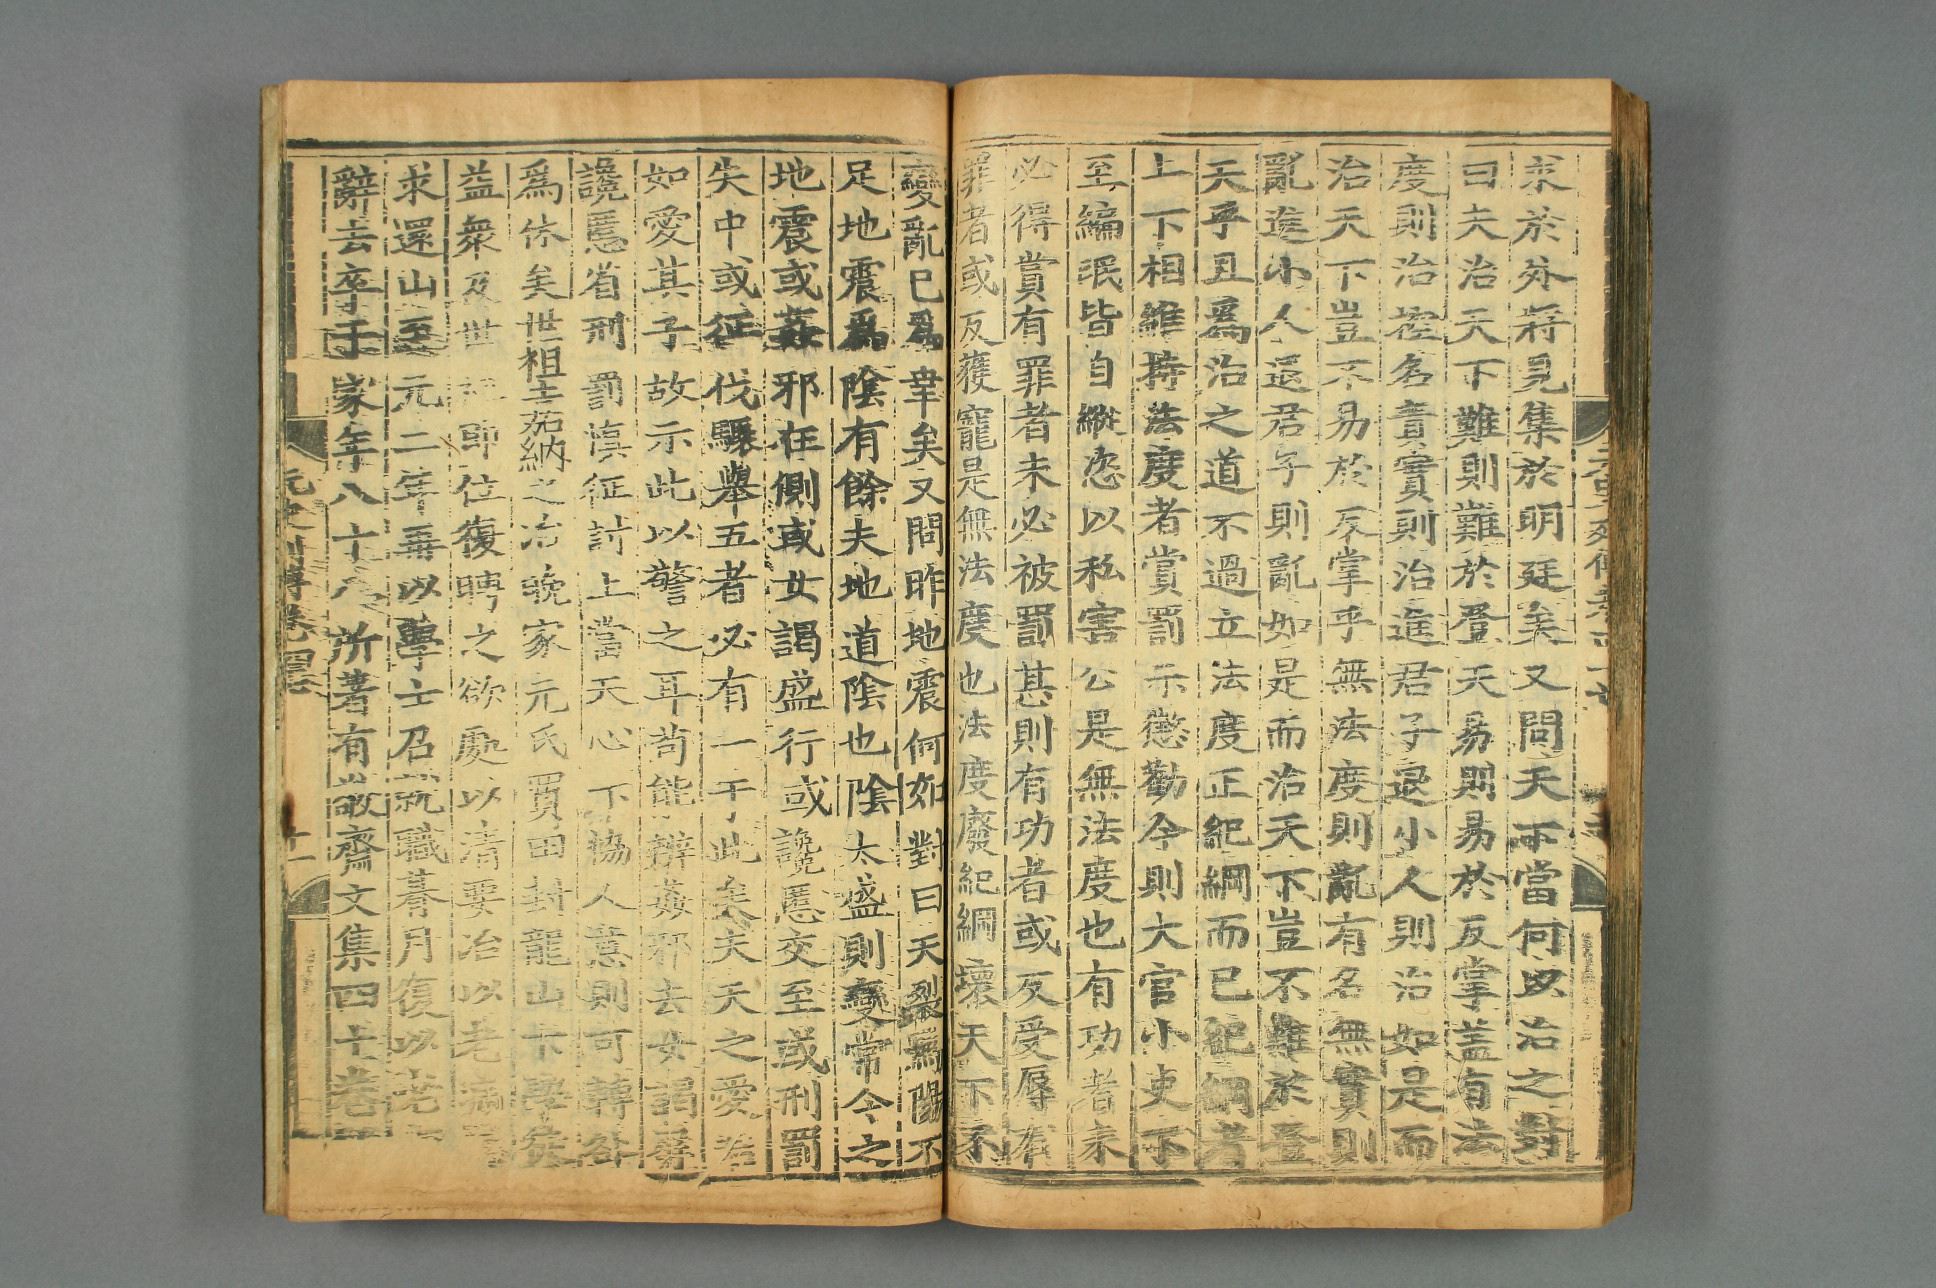 求於外將見集於明廷矣又問天下當何以治之對
曰夫治天下難則難於登天易則易於反掌盖有法
度則治控名責實則治進君子退小人則治如是而
治天下豈不易於反掌乎無法度則亂有名無實則
亂進小人退君子則亂如是而治天下豈不難於登
天乎且爲治之道不過立法度正紀綱而已紀綱者
上下相維持法度者賞罰示懲勸今則大官小吏下
至編氓皆自縱恣以私害公是無法度也有功者未
必得賞有罪者未必被罰甚則有功者或反受辱有
罪者或反獲寵是無法度也法度廢紀綱壞天下不
變亂已爲幸矣又問昨地震何如對曰天裂爲陽不
足地震爲陰有餘夫地道陰也陰太盛則變常今之
地震或姦邪在側或女謁盛行或讒慝交至或刑罰
失中或征伐驟舉五者必有一于此矣夫天之愛君
如愛其子故示此以警之耳苟能辨姦邪去女謁屏
讒慝省刑罰慎征討上當天心下協人意則可轉咎
爲休矣世祖嘉納之冶晚家元氏買田封龍山下學徒
益衆及世祖即位復聘之欲處以清要冶以老病懇
求還山至元二年再以學士召就職朞月復以老病
辭去卒于家年八十八所著有敬齋文集四十卷
元史列傳卷四十七
十一